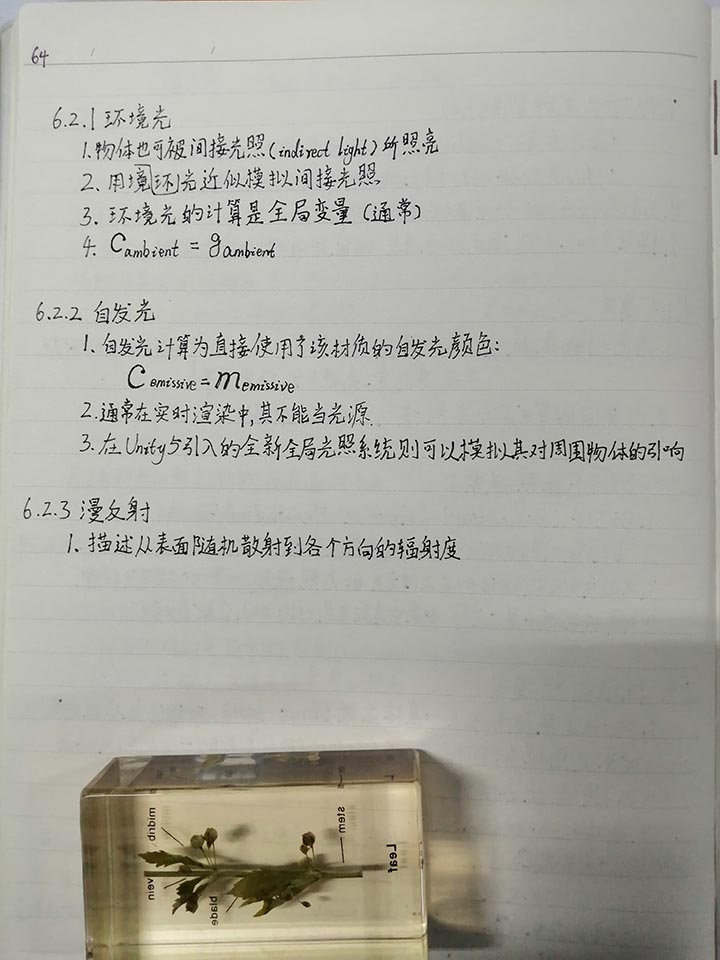 64
6.2.1 环境光
1.物体也可被间接光照(indirect light)所照亮
2. 用境环光近似模拟间接光照
3. 环境光的计算是全局变量(通常)
4. Cambient = gambient
6.2.2 自发光
1. 自发光计算为直接使用了该材质的自发光颜色:
Cemissive = memissive
2.通常在实时渲染中,其不能当光源.
3. 在Unity5引入的全新全局光照系统则可以模拟其对周围物体的引响
6.2.3 漫反射
1. 描述从表面随机散射到各个方向的辐射度
midrib
stem
Leaf
vein
blade